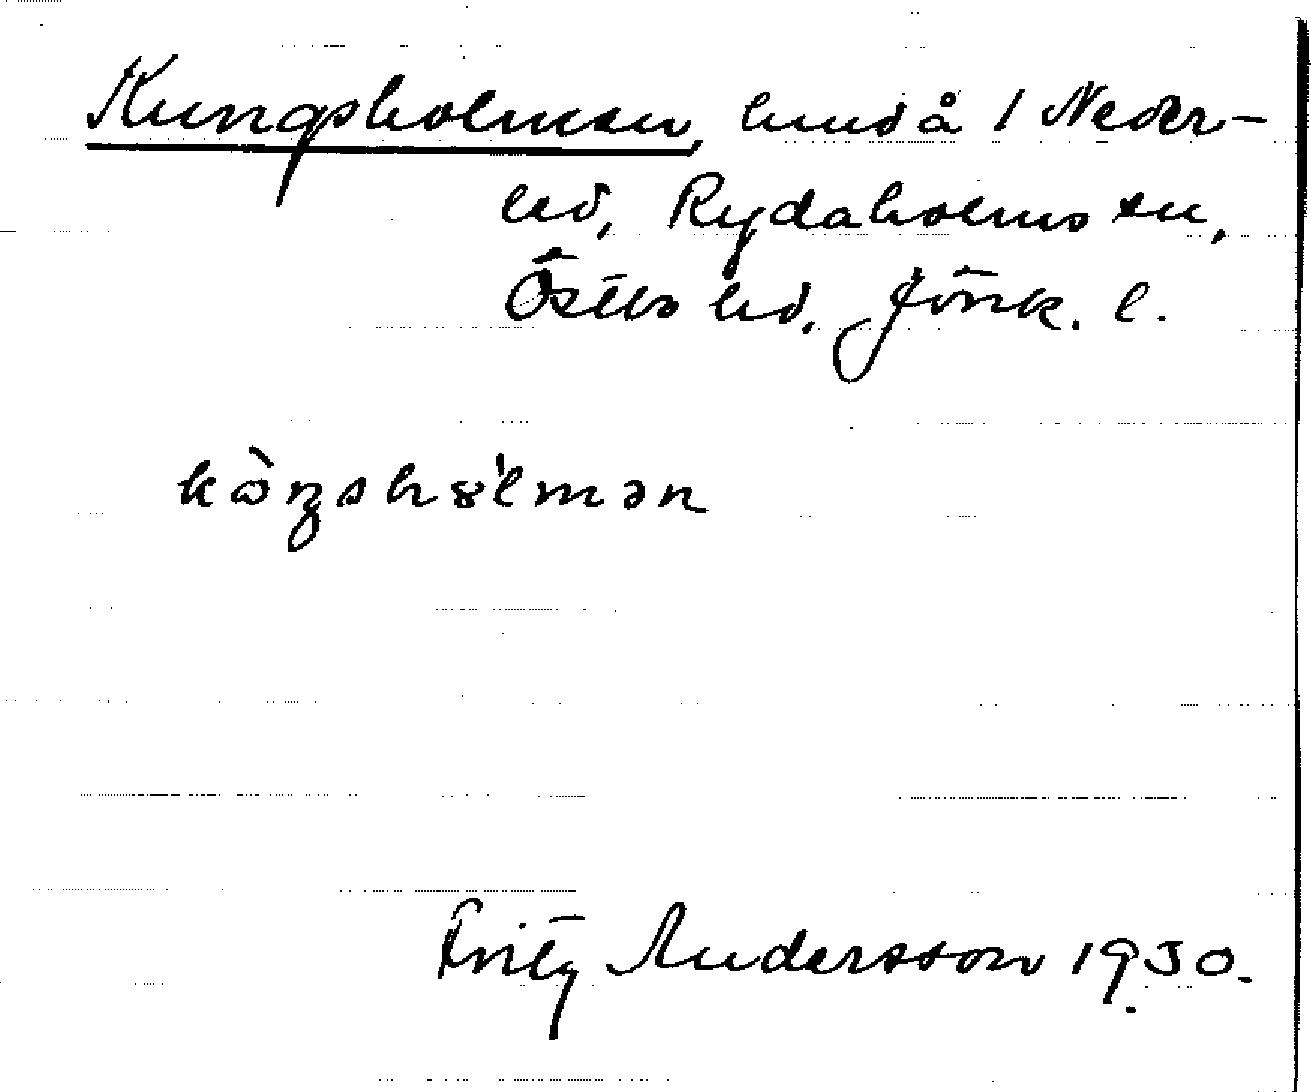 Kungsholmen, å 1 Neder-
led, Rydaholms sn,
Östbo hd, Jönk. l.
Fritz Andersson 1930.